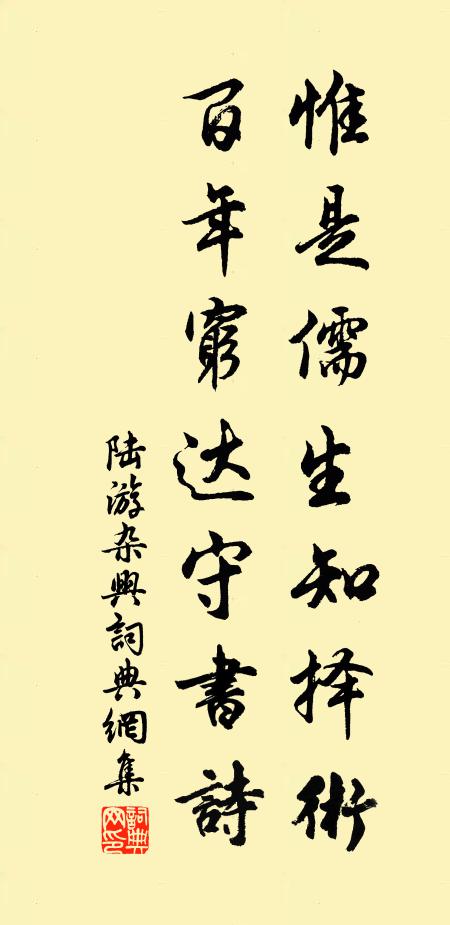 惟是儒生知择術
百年窮达守書詩
陆游杂興詞典網集
詞典網印